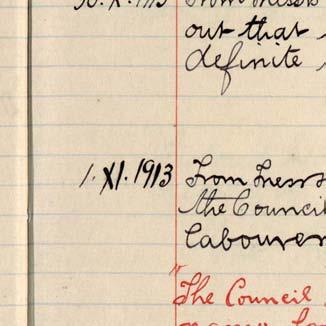 30.X.1913 From Messrs
out that
definite
1.XI.1913 From Messrs
the Council
labourer
"
The Council